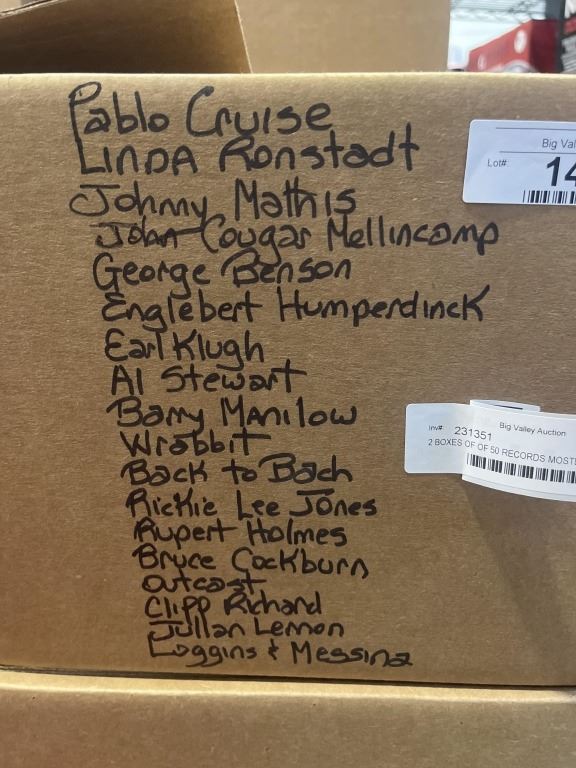 Pablo Cruise
LINDA Ronstadt
Johnny Mathis
John Cougar Mellincamp
George Benson
Englebert Humperdinck
Earl Klugh
Al Stewart
Barry Manilow
Wrabbit
Back to Bach
Rickie Lee Jones
Rupert Holmes
Bruce Cockburn
Outcast
Cliff Richard
Julian Lennon
Loggins & Messina
Big Val
Lot#: 14
Big Valley Auction
Inv# 231351
2 BOXES OF OF 50 RECORDS MOSTL